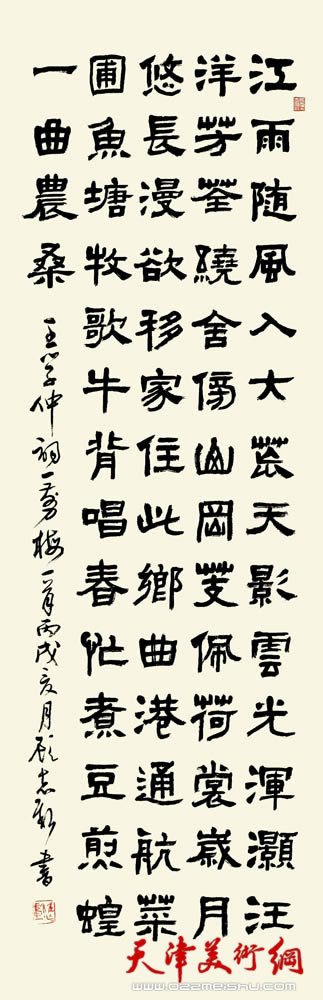 江雨随風入大荒天影雲光渾灝汪
洋芳荃繞舍傍山岡芰佩荷裳歲月
悠長漫欲移家住此鄉曲港通航菜
圃魚塘牧歌牛背唱春忙煮豆煎蝗
一曲農桑
王学仲詞一剪梅一首丙戌夏月顾志新書
天津美術網
www.022meishu.com